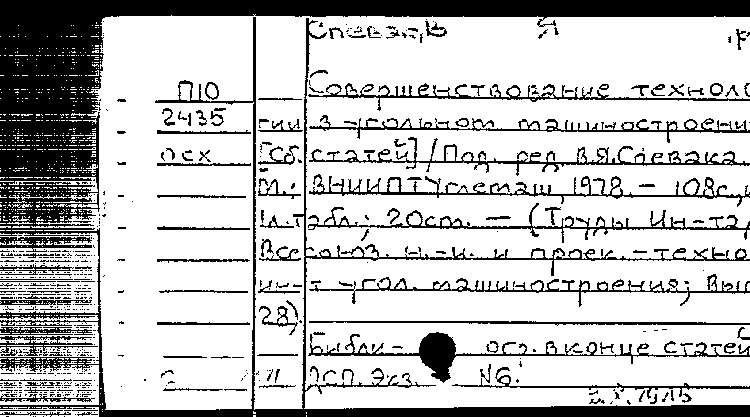 Спевак, В Я
П10 Совершенствование техноло
2435 гии в угольном машиностроени
осх [Сб. статей] / Под. ред. В.Я.Спевака.
М.: ВНИИПТУглемаш, 1978. - 108с.,
ил. табл.; 20см. — (Труды Ин-та/
Всесоюз. н.-и. и проек.-техно
ин-т угол. машиностроения; Вып
28).
Библи- огр. в конце статей
ДСП. Экз. №6.